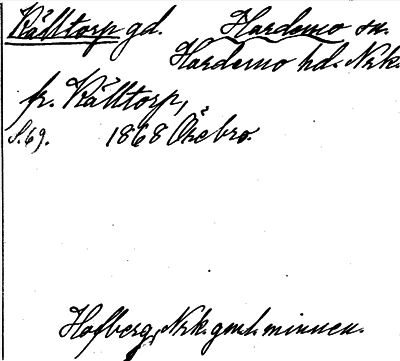 Källtorp gd. Hardemo sn.
Hardemo hd. Nrk.
fr. Källtorp,
S. 69. 1868 Örebro.
Hofberg, Nrk. gml. minnen.